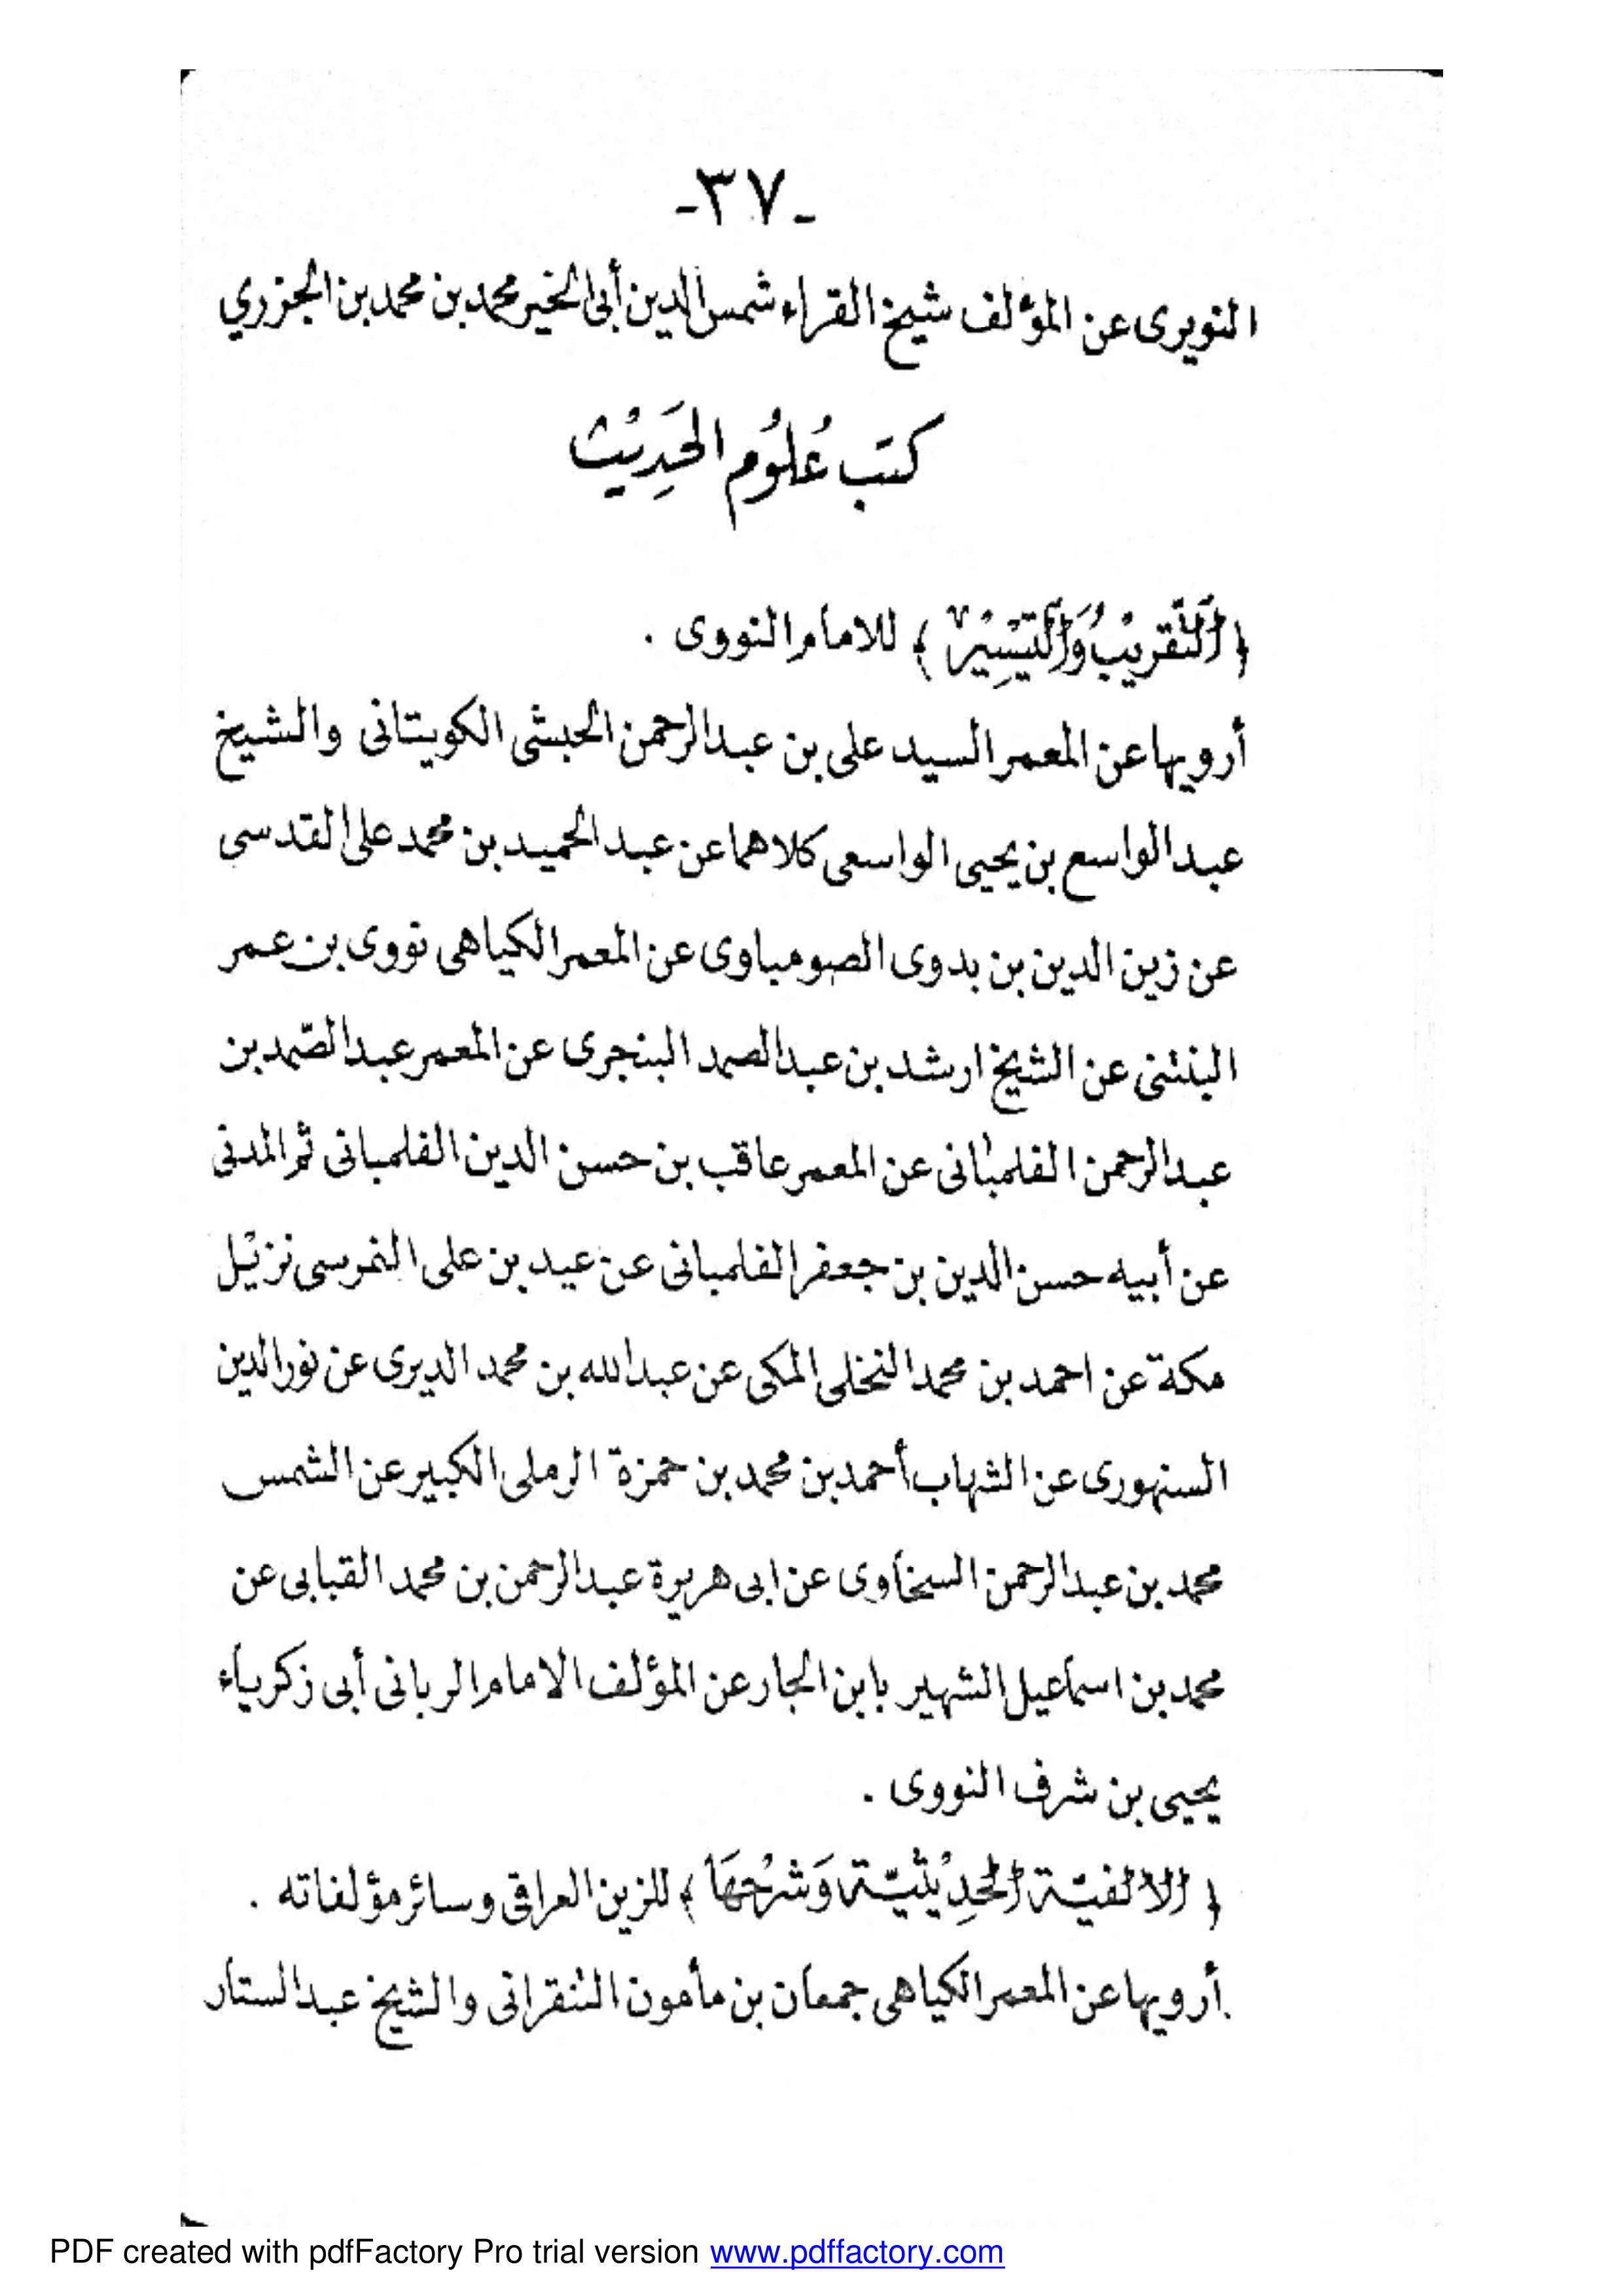 -٣٧-
النويرى عن المؤلف شيخ القراء شمس الدين أبى الخير محمد بن محمد بن الجزري
كتب عُلُوُم الحَدِيْث
﴿ اَلتَّقرِيْبُ وَالتَّيْسِيْرُ ﴾ للامام النووى .
أرويها عن المعمر السيد على بن عبد الرحمن الحبشى الكويتانى والشيخ
عبد الواسع بن يحيى الواسعى كلاهما عن عبد الحميد بن محمد على القدسى
عن زين الدين بن بدوى الصومباوى عن المعمر الكياهى نووى بن عمر
البنتنى عن الشيخ ارشد بن عبد الصمد البنجرى عن المعمر عبد الصّمد بن
عبد الرحمن الفلمبانى عن المعمر عاقب بن حسن الدين الفلمبانى ثم المدنى
عن أبيه حسن الدين بن جعفر الفلمبانى عن عيد بن على النمرسى نزيل
مكة عن احمد بن محمد النخلى المكى عن عبد الله بن محمد الديرى عن نور الدين
السنهورى عن الشهاب أحمد بن محمد بن حمزة الرملى الكبير عن الشمس
محمد بن عبد الرحمن السخاوى عن ابى هريرة عبد الرحمن بن محمد القبابى عن
محمد بن اسماعيل الشهير بابن الجار عن المؤلف الامام الربانى أبى زكرياء
يحيى بن شرف النووى .
﴿ الالفيّة الحَدِيْثيّة وَشَرْحُهَا ﴾ للزين العراقى وسائر مؤلفاته .
أرويها عن المعمر الكياهى جمعان بن مأمون التنقرانى والشيخ عبد الستار
PDF created with pdfFactory Pro trial version www.pdffactory.com